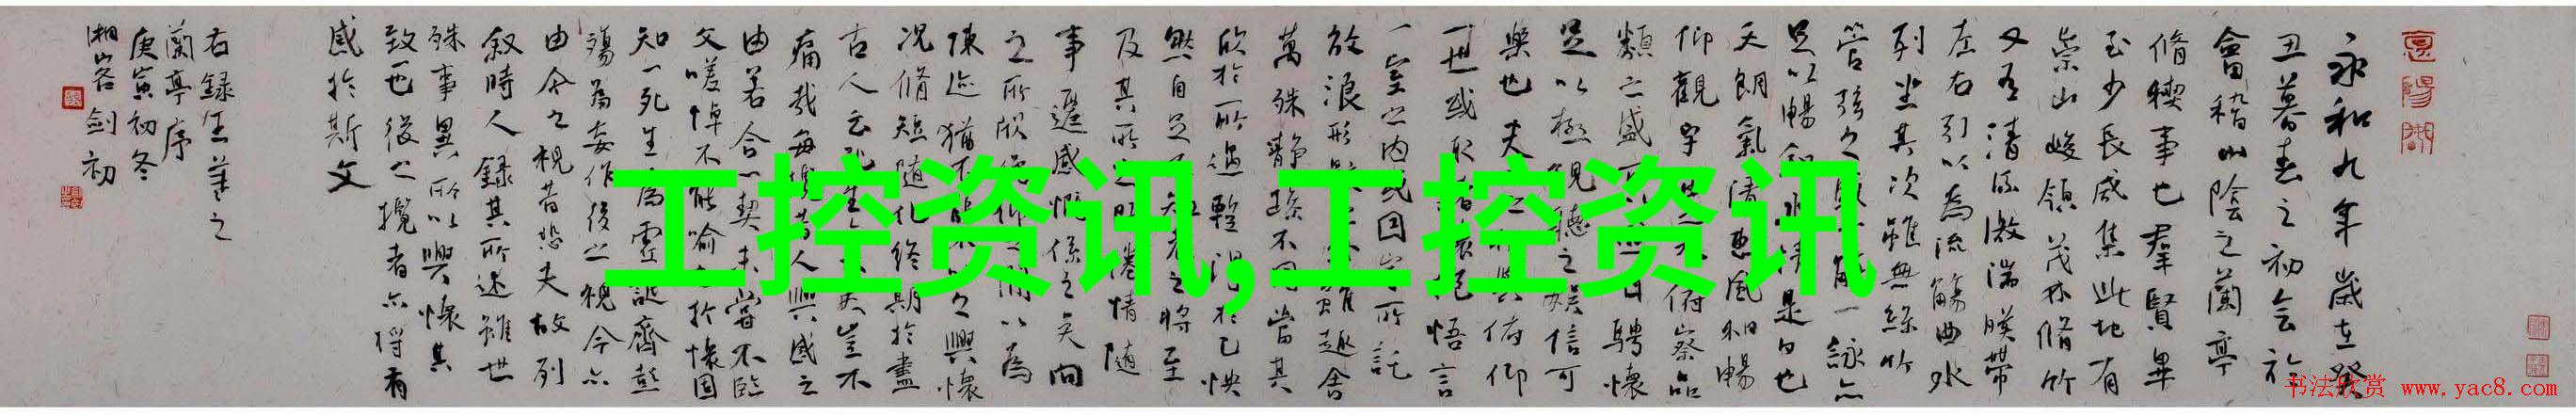 永和九年歲在癸
丑暮春之初會於
會稽山陰之蘭亭
脩稧事也羣賢畢
至少長咸集此地有
崇山峻領茂林脩竹
又有清流激湍暎帶
左右引以為流觴曲水
列坐其次雖無絲竹
管弦之盛一觴一詠亦
足以暢叙幽情是日也
天朗氣清惠風和暢
仰觀宇宙之大俯察品
類之盛所以遊目騁懷
足以極視聽之娛信可
樂也夫人之相與俯仰
一世或取諸懷抱悟言
一室之內或因寄所託
放浪形骸之外雖趣舍
萬殊靜躁不同當其
欣於所遇暫得於己快
然自足不知老之將至
及其所之既惓情隨
事遷感慨係之矣向
之所欣俛仰之閒以為
陳迹猶不能不以之興懷
况脩短隨化終期於盡
古人云死生亦大矣豈不
痛哉每攬昔人興感之
由若合一契未嘗不臨
文嗟悼不能喻之於懷固
知一死生為虛誕齊彭
殤為妄作後之視今亦
由今之視昔悲夫故列
叙時人錄其所述雖世
殊事異所以興懷其
致一也後之攬者亦將有
感於斯文
右録王羲之
蘭亭序
庚寅初冬
劍初
工控资讯,工控资讯
书法欣赏 www.yac8.com